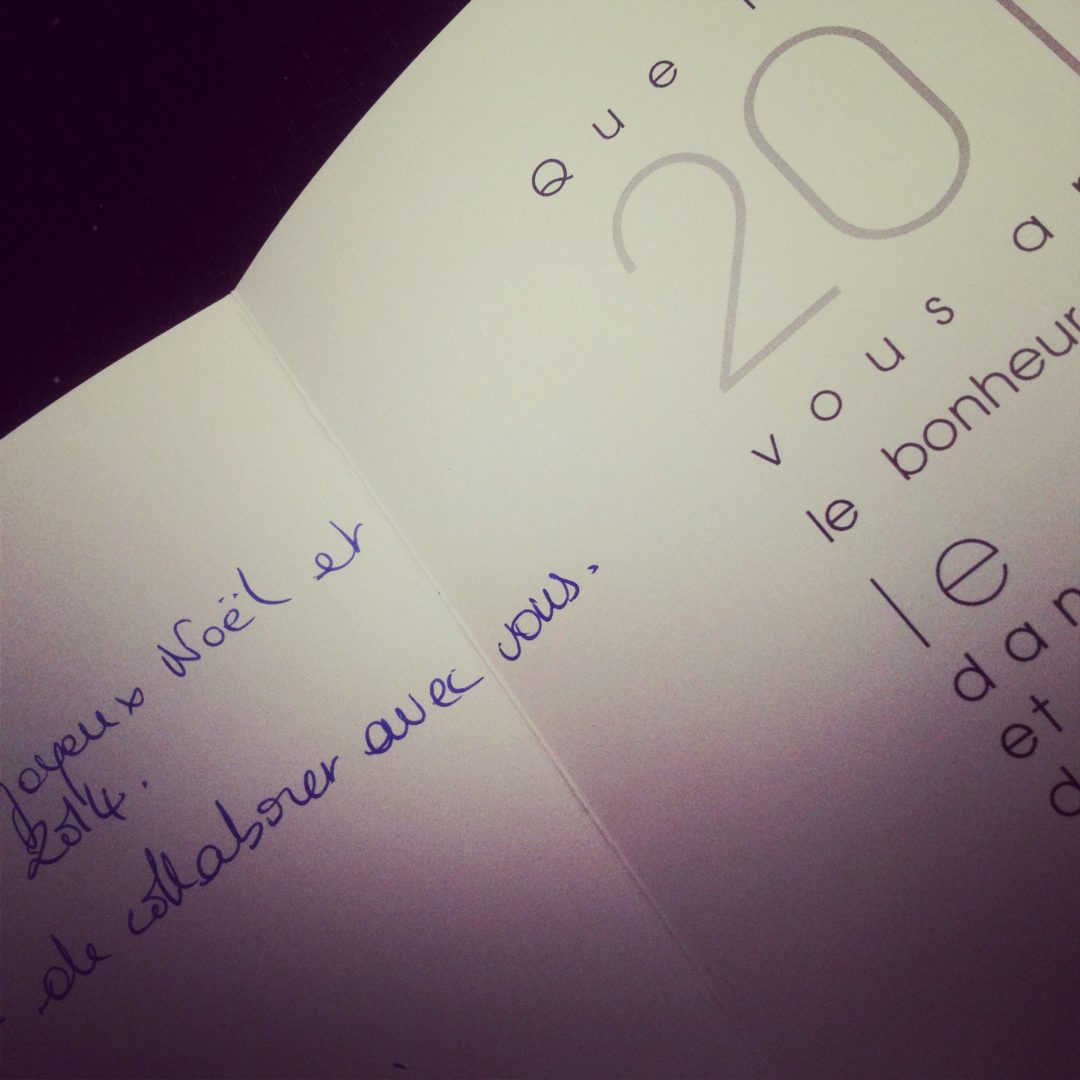 Joyeux Noël et
2014.
de collaborer avec vous.
Que
20
vous
le bonheur
le
dan
et
d